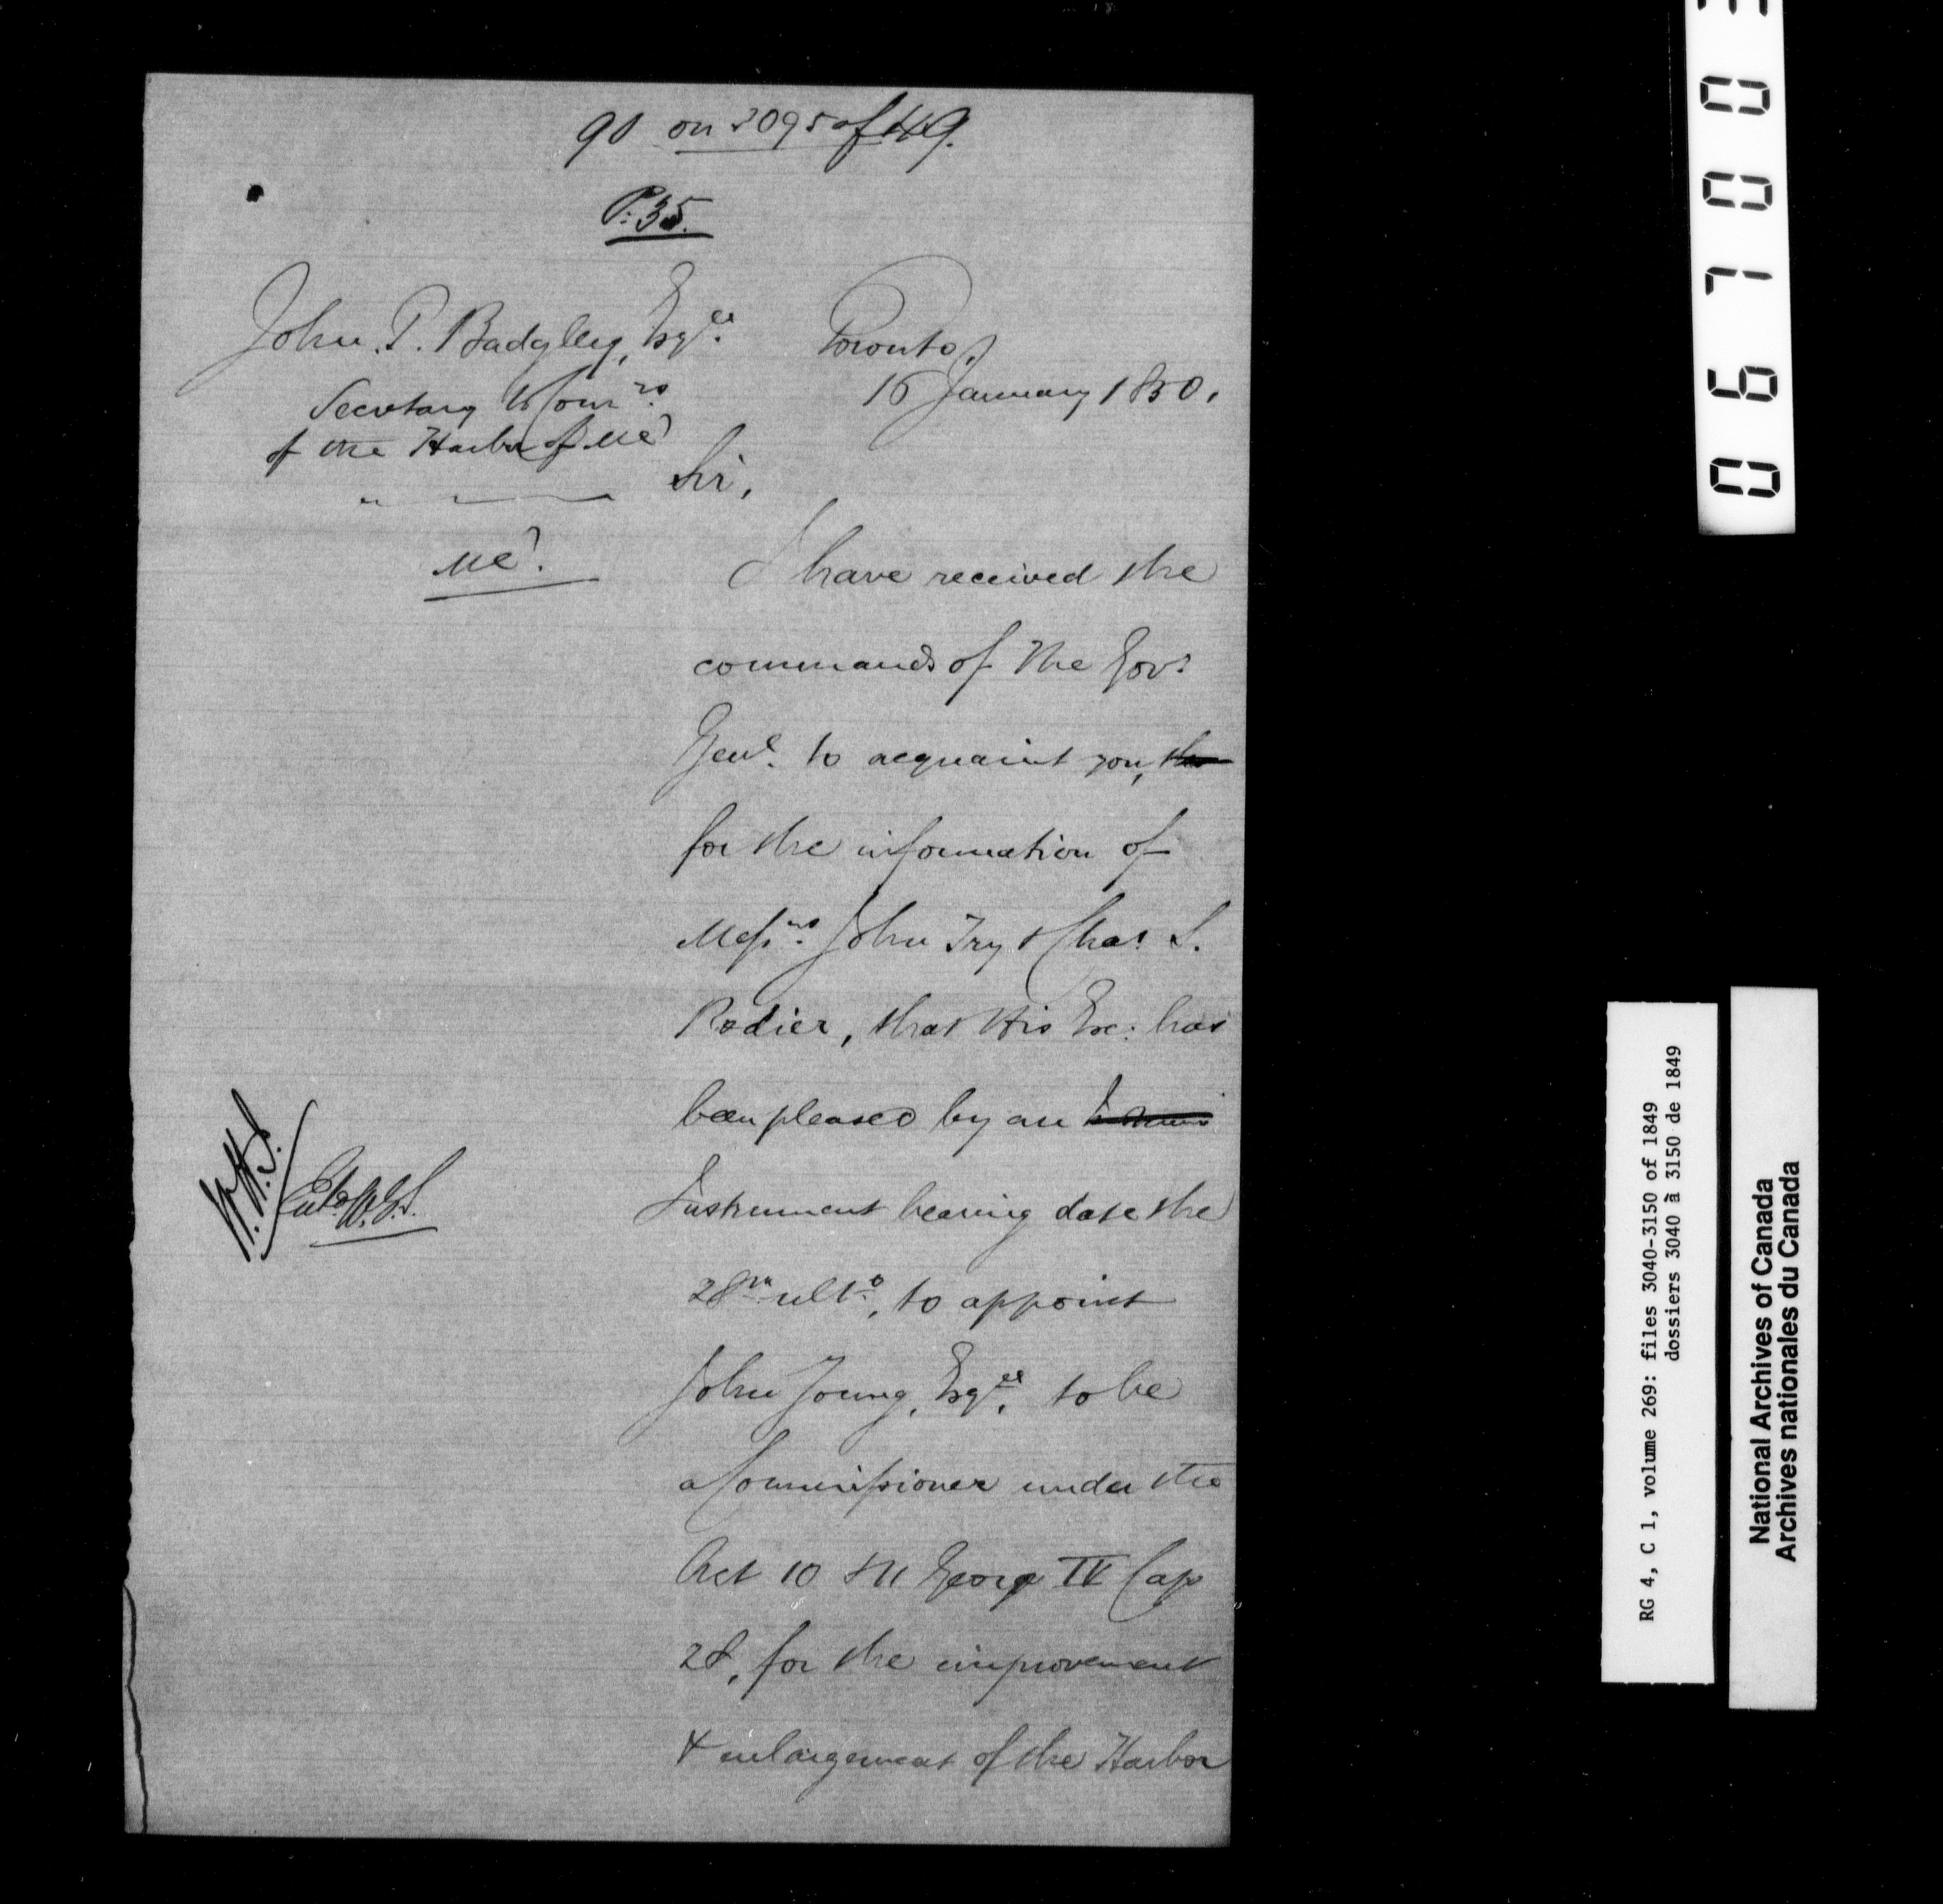 90 on 3095 of 49.
P. 35.
John. P. Badgley, Esqre.
Secretary to Comrs.
of the Harbor of Ml
Ml.
Toronto,
16 January 1850.
Sir,
I have received the
commands of the Govr
Genl. to acquaint you,
for the information of
Messrs. John Try & Chas. S.
Rodier, that His Exc: has
been pleased by an
Instrument bearing date the
28th ulto., to appoint
John Young, Esqre. to be
a Commissioner under the
Act 10 & 11 George IV Cap
28, for the improvement
& enlargement of the Harbor
06700
RG 4, C 1, volume 269: files 3040-3150 of 1849
dossiers 3040 à 3150 de 1849
National Archives of Canada
Archives nationales du Canada